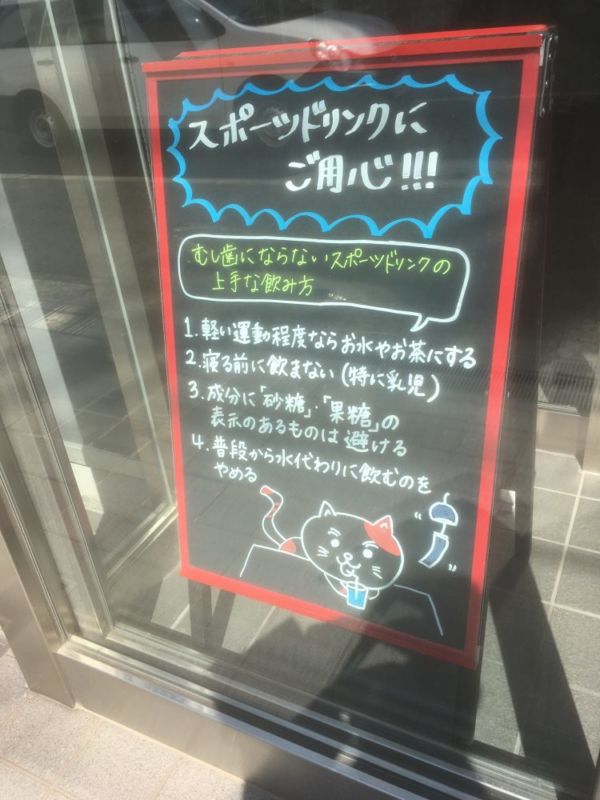 スポーツドリンクに
ご用心!!!
むし歯にならないスポーツドリンクの
上手な飲み方
1. 軽い運動程度ならお水やお茶にする
2. 寝る前に飲まない(特に乳児)
3. 成分に「砂糖」・「果糖」の
表示のあるものは避ける
4. 普段から水代わりに飲むのを
やめる